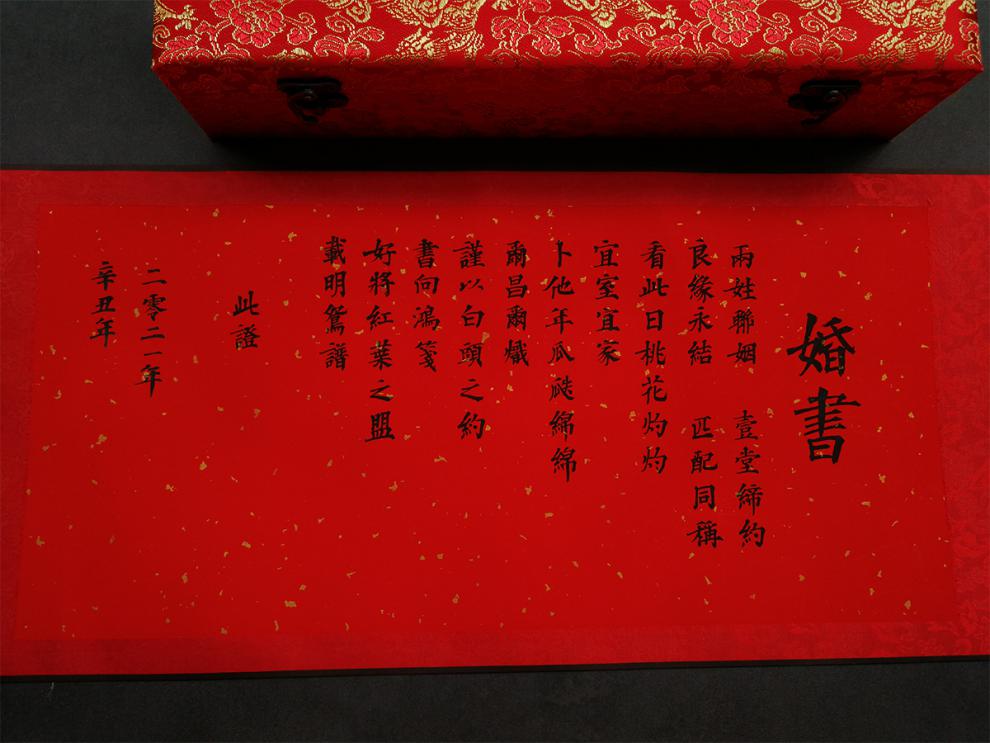 婚書
兩姓聯姻 壹堂締約
良緣永結 匹配同稱
看此日桃花灼灼
宜室宜家
卜他年瓜瓞綿綿
爾昌爾熾
謹以白頭之約
書向鴻箋
好將紅葉之盟
載明鴛譜
此證
二零二一年
辛丑年